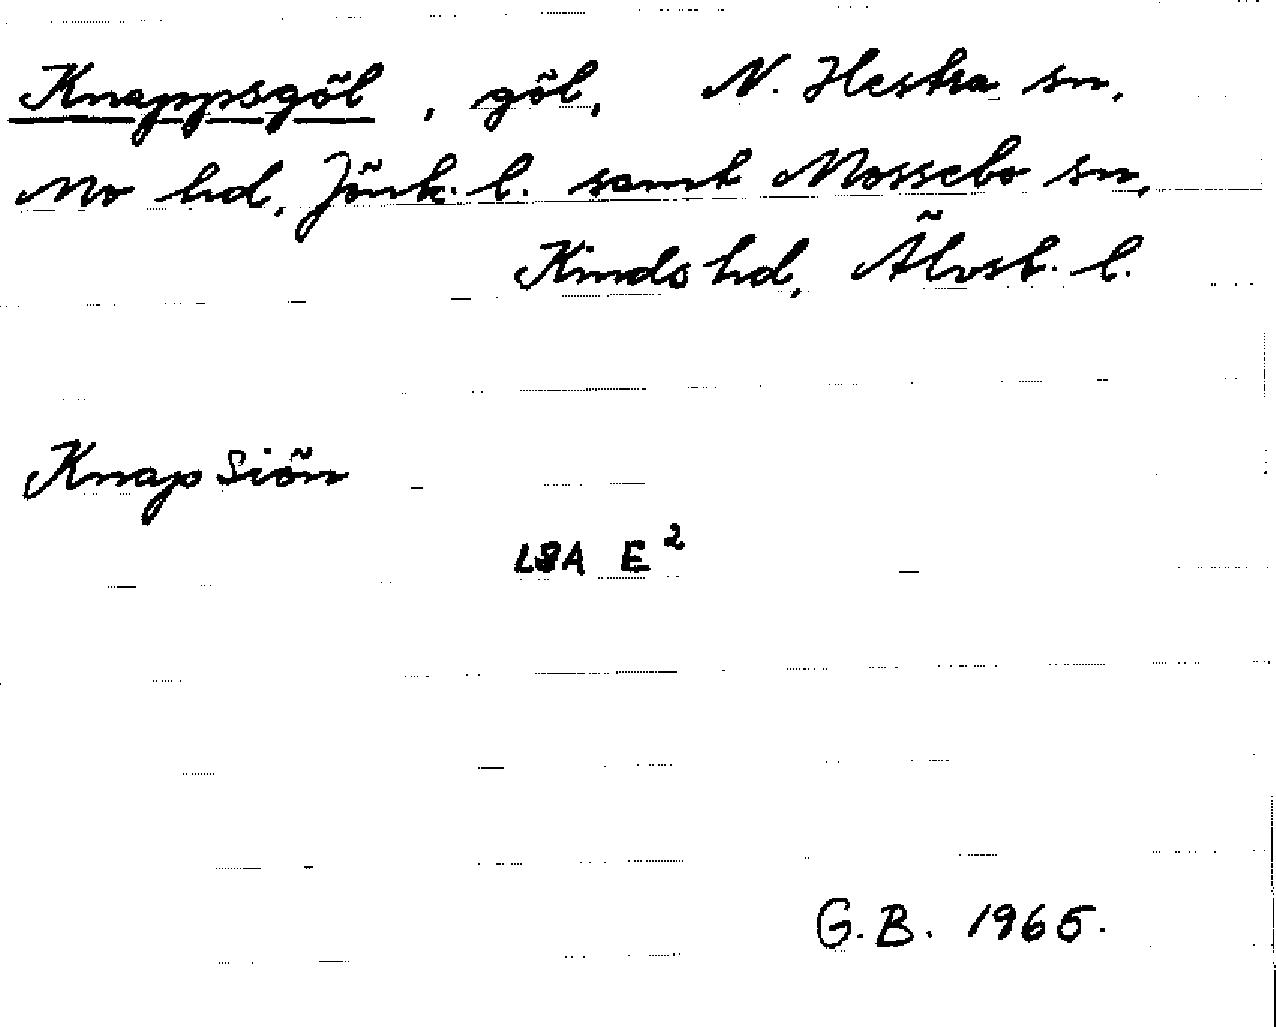 Knappsgöl, göl, N. Hestra sn,
Mo hd, Jönk. l. samt Mossebo sn,
Kinds hd, Älvsb. l.
Knap Siön
LSA E²
G.B. 1965.